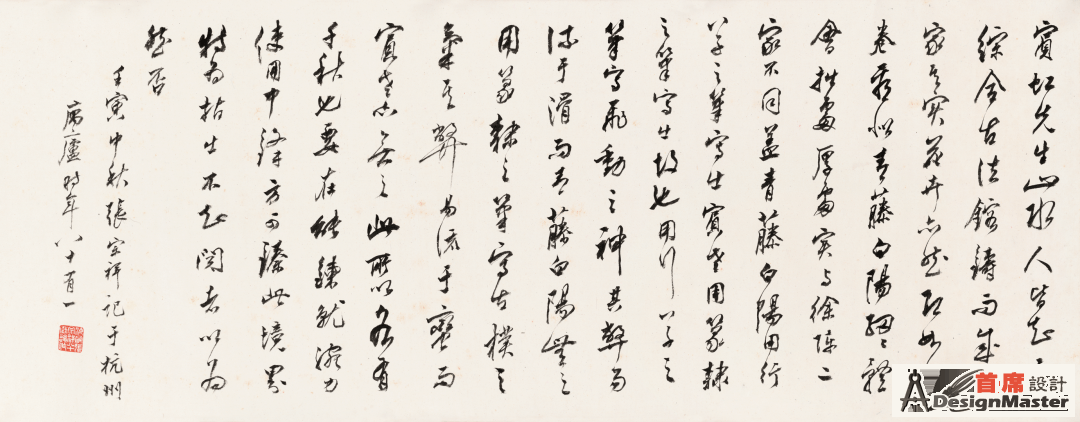 賓虹先生山水人皆知
綜合古法鎔鑄而成
家其實花卉亦然即如
卷看似青藤白陽細〻
會拙處厚處實與徐陳二
家不同蓋青藤白陽用行
草之筆寫生賓老用篆隸
之筆寫生故也用行草之
筆寫飛動之神其弊為
流于滑而青藤白陽無之
用篆隸之筆寫古樸之
氣其弊易流于而
賓老亦無之此所以各有
千秋也要在能鍊就腕力
使用中鋒方可臻此境界
特為拈出不知閱者以為
然否
壬寅中秋張宗祥記于杭州
廬時年八十有一
首席設計
DesignMaster